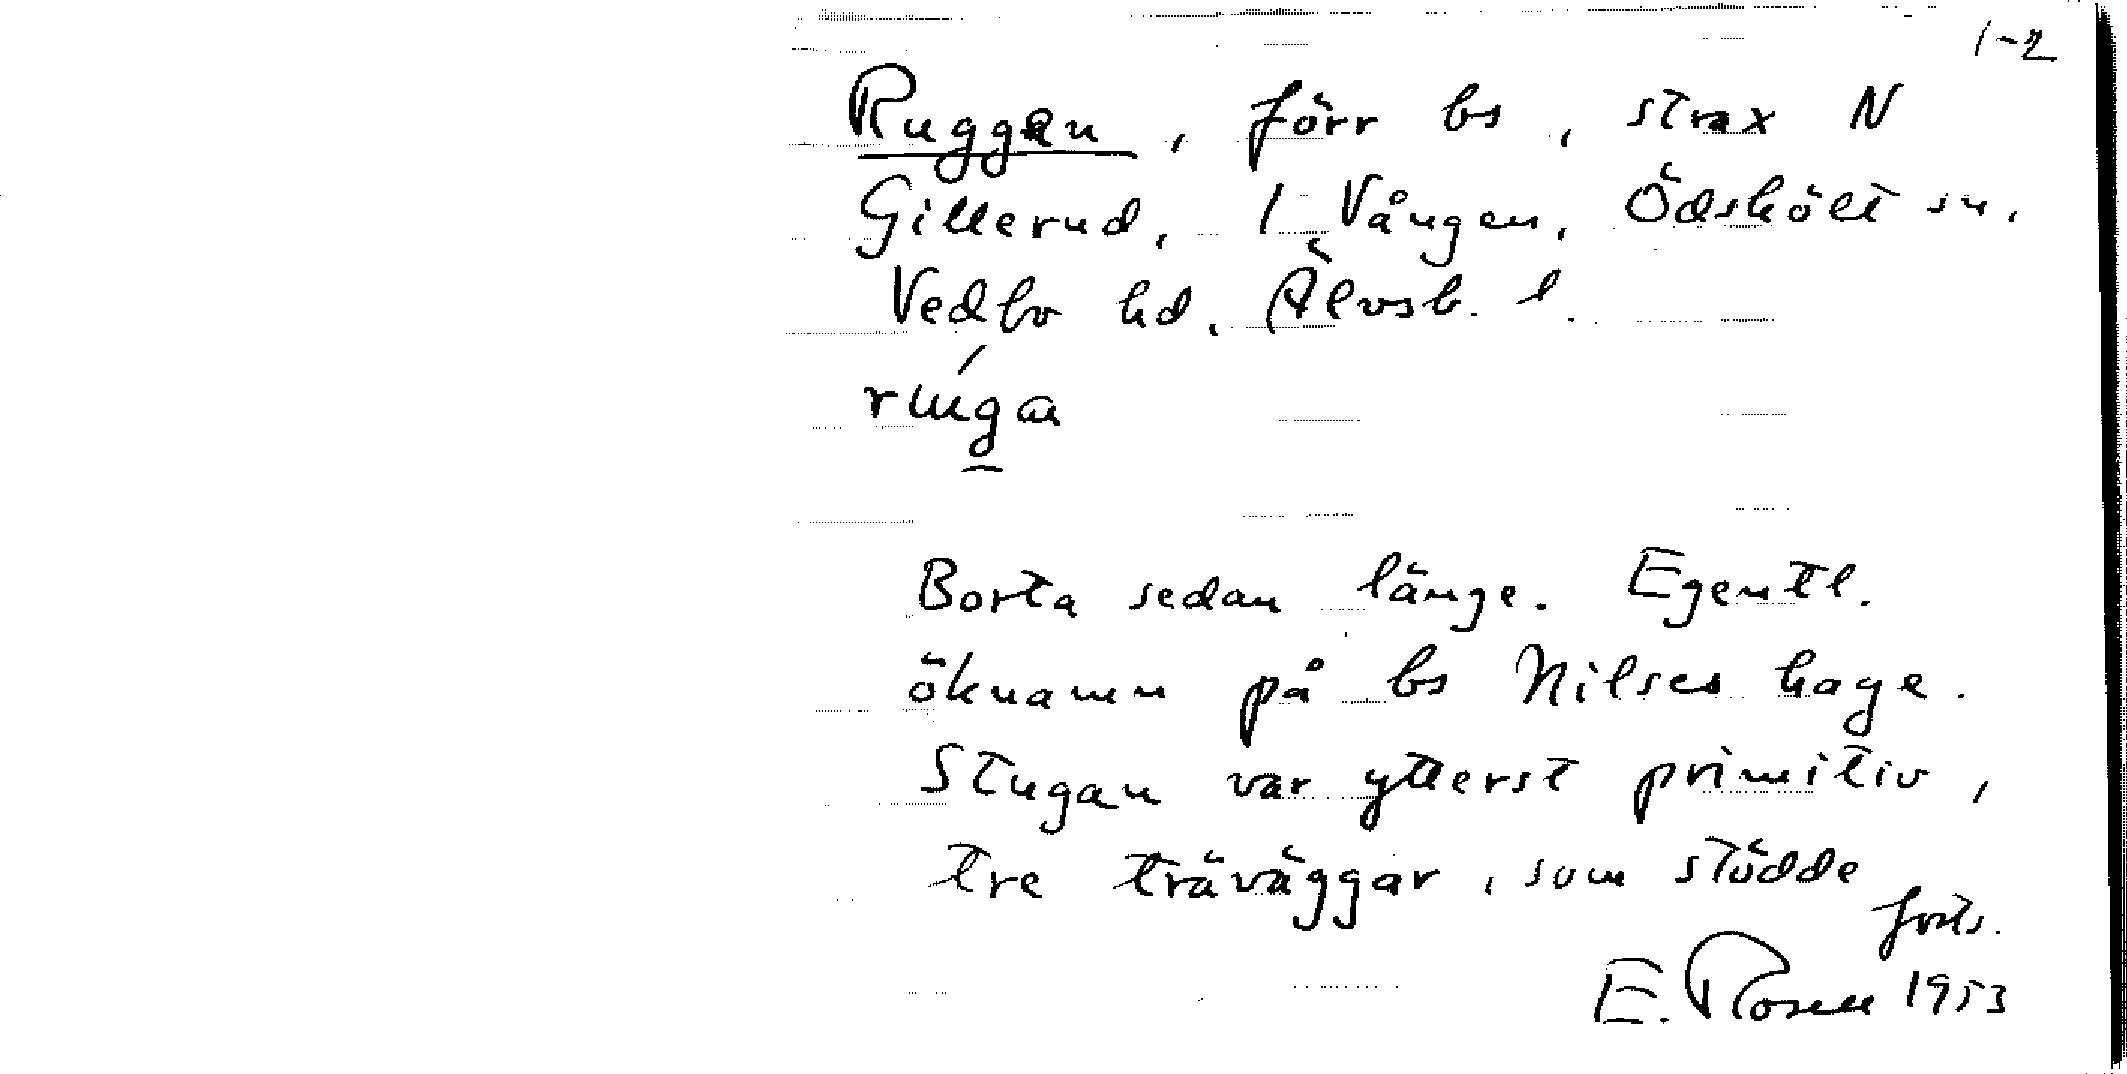 1-2
Ruggen, förr bs, strax N
Gillerud, 1 Vången, Ödskölt sn,
Vedbo hd, Älvsb. l.
Borta sedan länge. Egentl.
öknamn på bs Nilses hage.
Stugan var ytterst primitiv,
tre träväggar, som stödde
forts.
E. Rosell 1953